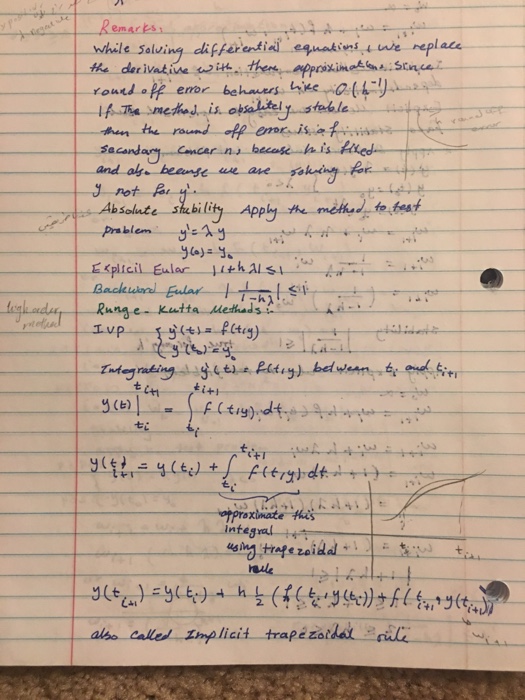 Remarks:
While solving differential equations, we replace
the derivative with there approximations. Since
round off error behavers like O(h⁻¹)
If The method is obsalitely stable
then the round off error is of
secondary concer n, becuse h is fixed
and also becuse we are solving for
y not for y'.
Absolute stability Apply the method to test
problem y' = λ y
y(0) = y₀
Explicil Eular |1+hλ| ≤ 1
Backword Eular | 1/(1-hλ) | ≤ 1
high order
method
Runge-Kutta Methods:-
IVP { y'(t) = f(t,y)
{ y(t₀) = y₀
Integrating y'(t) = f(t,y) between tᵢ and tᵢ₊₁
y(t)|_{tᵢ}^{tᵢ₊₁} = ∫_{tᵢ}^{tᵢ₊₁} f(t,y) dt
y(tᵢ₊₁) = y(tᵢ) + ∫_{tᵢ}^{tᵢ₊₁} f(t,y) dt
approximate this
integral
using trapezoidal
rule
tᵢ tᵢ₊₁
y(tᵢ₊₁) = y(tᵢ) + h ½ (f(tᵢ, y(tᵢ)) + f(tᵢ₊₁, y(tᵢ₊₁)))
also called Implicit trapezoidal rule